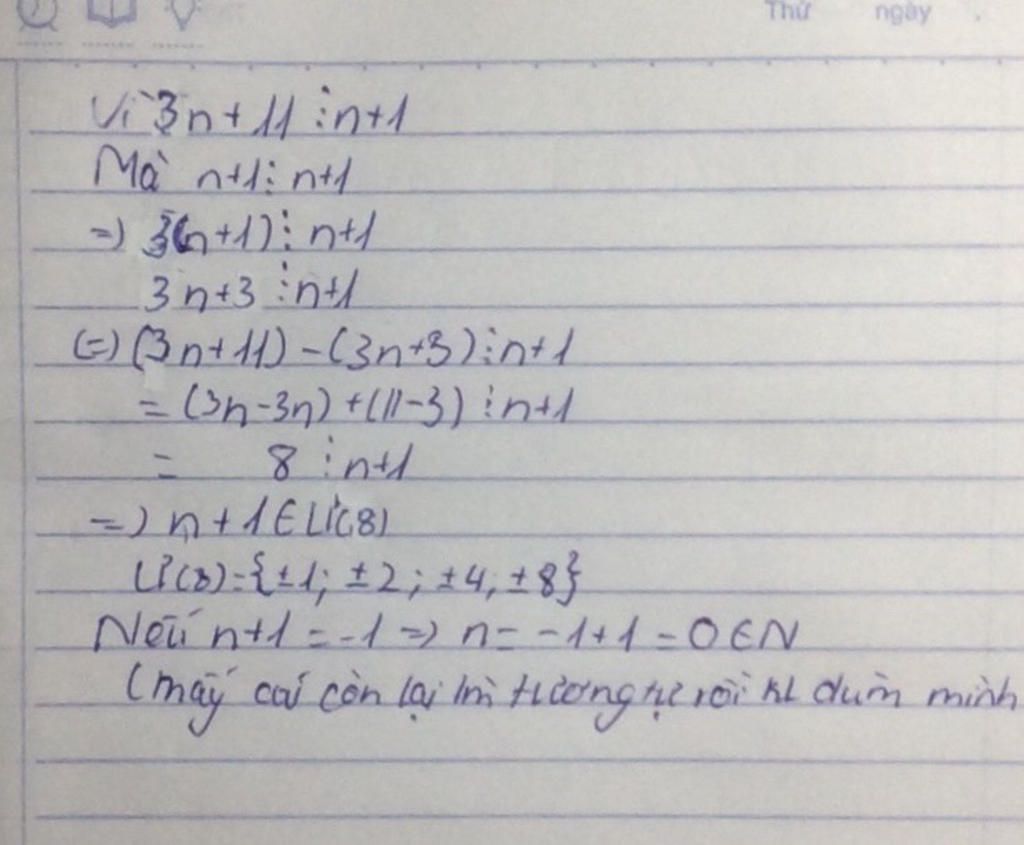 Thứ ngày
Vì 3n + 11 ⋮ n+1
Mà n+1 ⋮ n+1
=) 3(n+1) ⋮ n+1
3n+3 ⋮ n+1
(=) (3n+11) - (3n+3) ⋮ n+1
= (3n-3n) + (11-3) ⋮ n+1
= 8 ⋮ n+1
=) n+1 ∈ Ư(8)
Ư(8)={±1; ±2; ±4; ±8}
Nếu n+1 = -1 => n = -1+1 = 0 ∈ N
(mấy cái còn lại thì tương tự rồi KL dùm mình